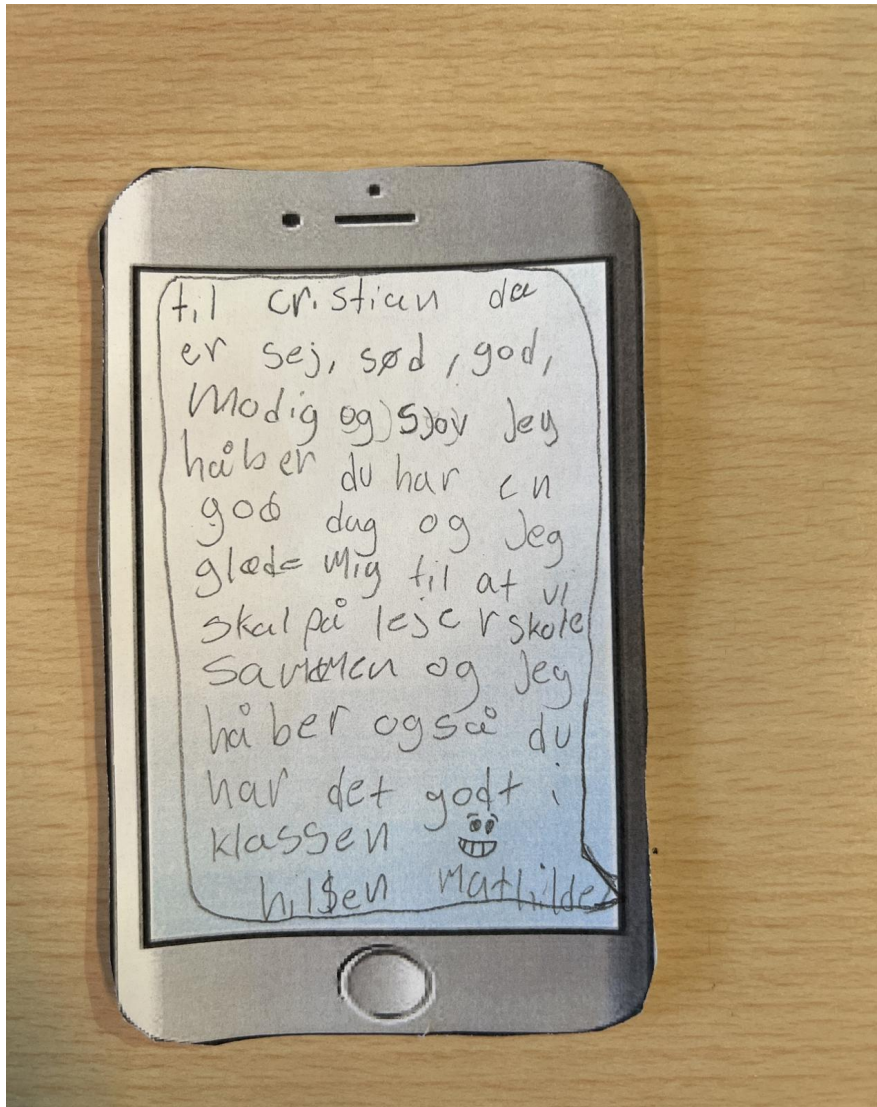 til cristian da
er sej, sød, god,
modig og sjov Jeg
håber du har en
god dag og Jeg
glæde mig til at vi
skal på lejerskole
sammen og Jeg
håber også du
har det godt i
klassen
hilsen Mathilde